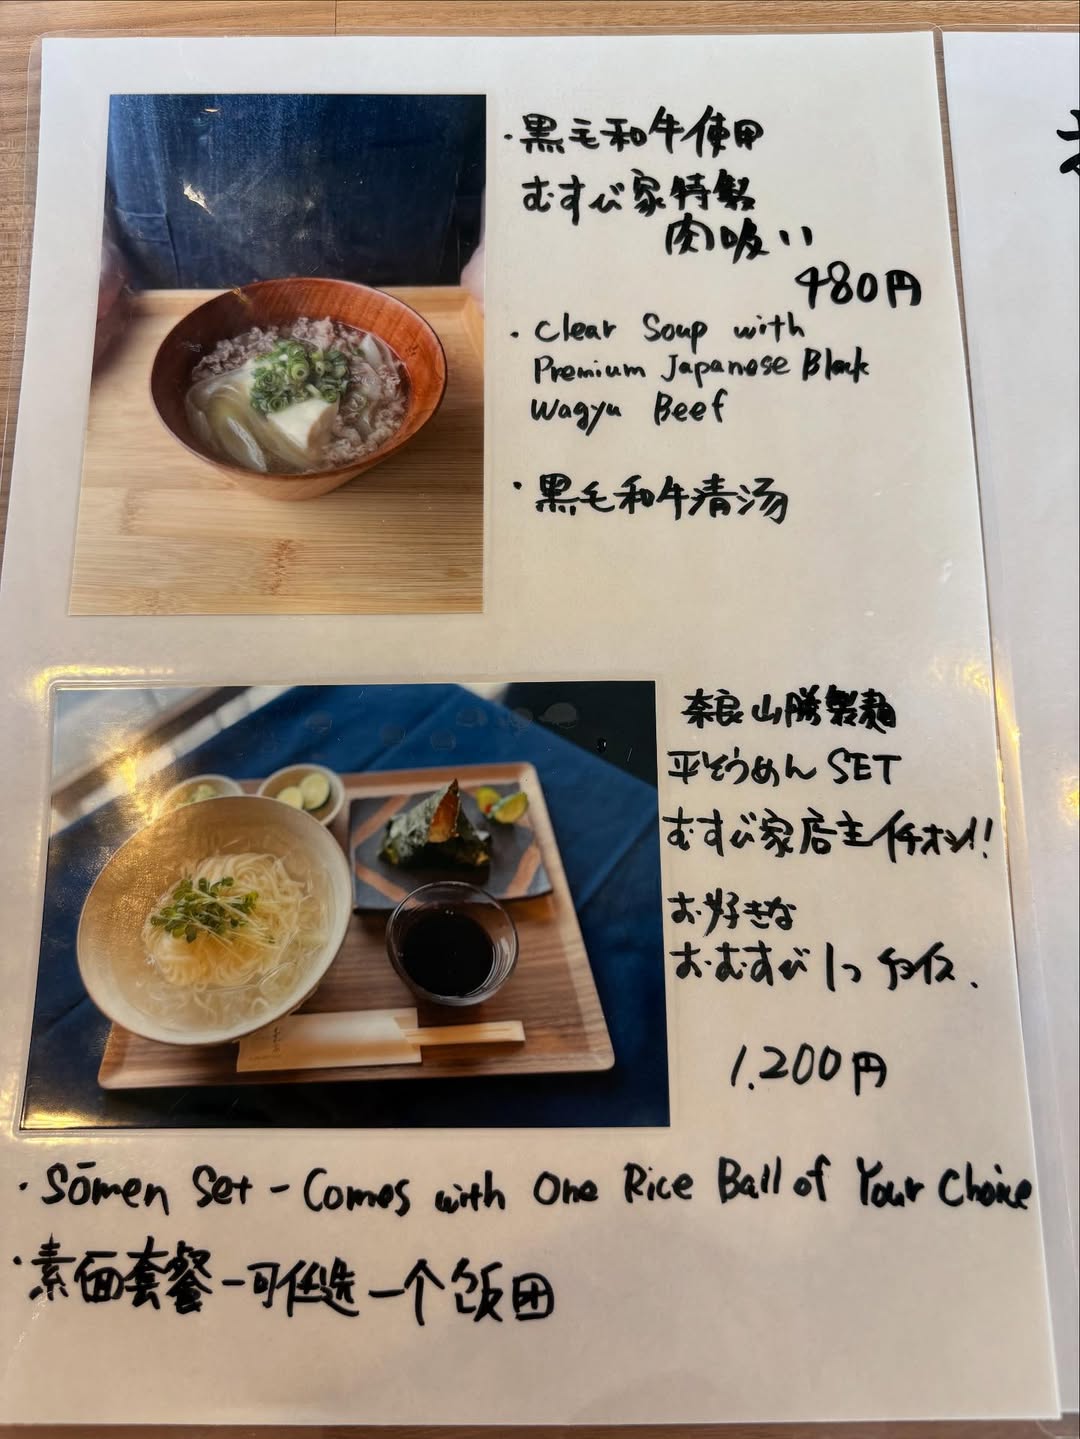 ・黒毛和牛使用
むすび家特製
肉吸い
480円
・Clear Soup with
Premium Japanese Black
Wagyu Beef
・黒毛和牛清汤
奈良 山勝製麺
平そうめん SET
むすび家店主イチオシ!!
お好きな
おむすび1つ チョイス、
1,200円
・Sōmen Set - Comes with One Rice Ball of Your Choice
・素面套餐 - 可任选一个饭团